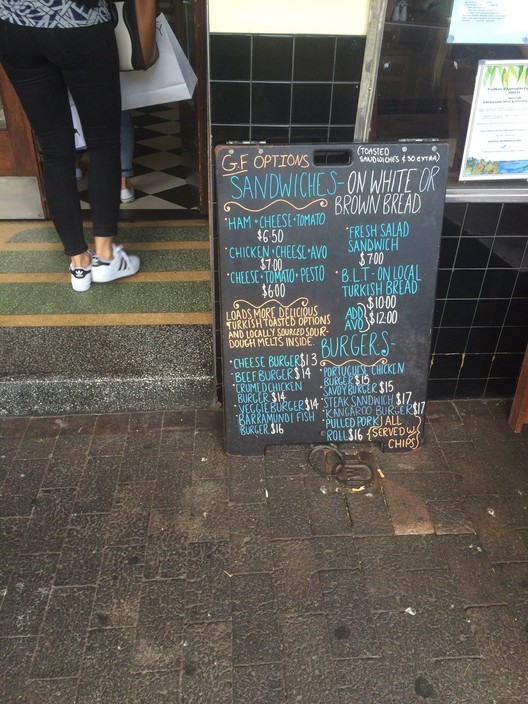 G.F OPTIONS
(TOASTED
SANDWICHES $.50 EXTRA)
SANDWICHES- ON WHITE OR
BROWN BREAD
*HAM+CHEESE+TOMATO
$6.50
*CHICKEN+CHEESE+AVO
$7.00
*CHEESE+TOMATO+PESTO
$6.00
*FRESH SALAD
SANDWICH
$7.00
*B.L.T-ON LOCAL
TURKISH BREAD
$10.00
ADD
AVO } $12.00
LOADS MORE DELICIOUS
TURKISH TOASTED OPTIONS
AND LOCALLY SOURCED SOUR-
DOUGH MELTS INSIDE.
BURGERS-
*CHEESE BURGER $13
*BEEF BURGER $14
*CRUMED CHICKEN
BURGER $14
*VEGGIE BURGER $14
*BARRAMUNDI FISH
BURGER $16
*PORTUGUESE CHICKEN
BURGER $15
*SAVOY BURGER $15
*STEAK SANDWICH $17
*KANGAROO BURGER $17
*PULLED PORK
ROLL $16
(ALL
SERVED W/
CHIPS)